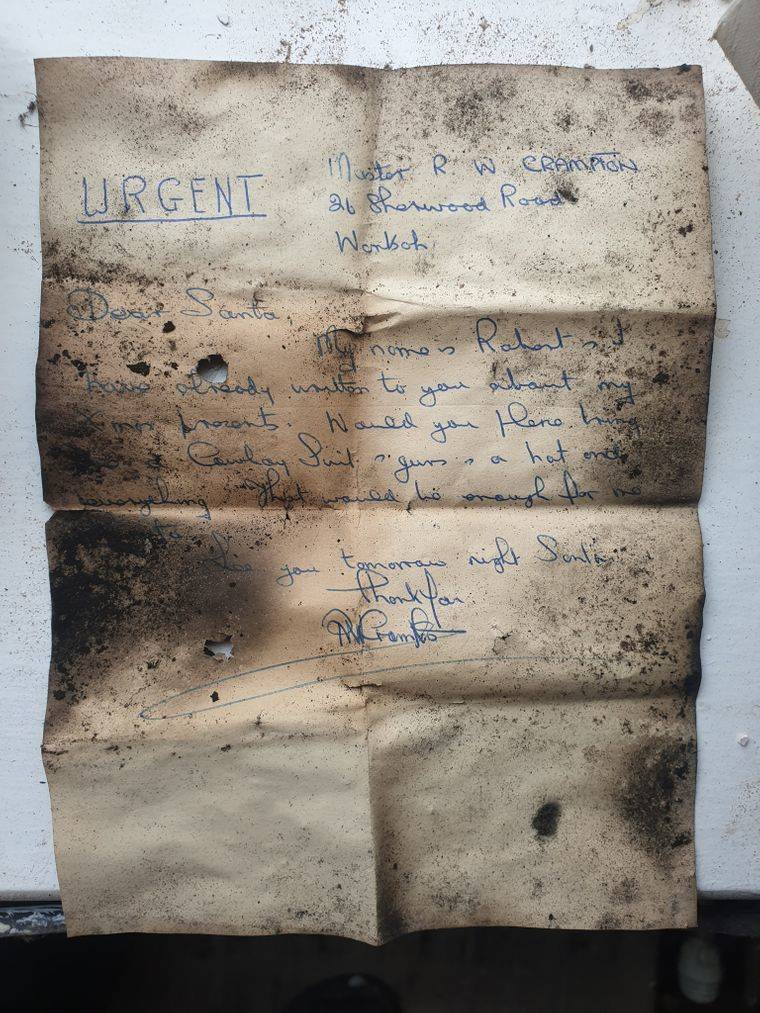 URGENT
Master R W CRAMPTON
26 Sherwood Road
Worksop
Dear Santa,
My name is Robert & I
have already written to you about my
Xmas presents. Would you please bring
me a Cowboy Suit & guns & a hat and
everything. That would be enough for me
See you tomorrow night Santa
Thank You
RWCrampton